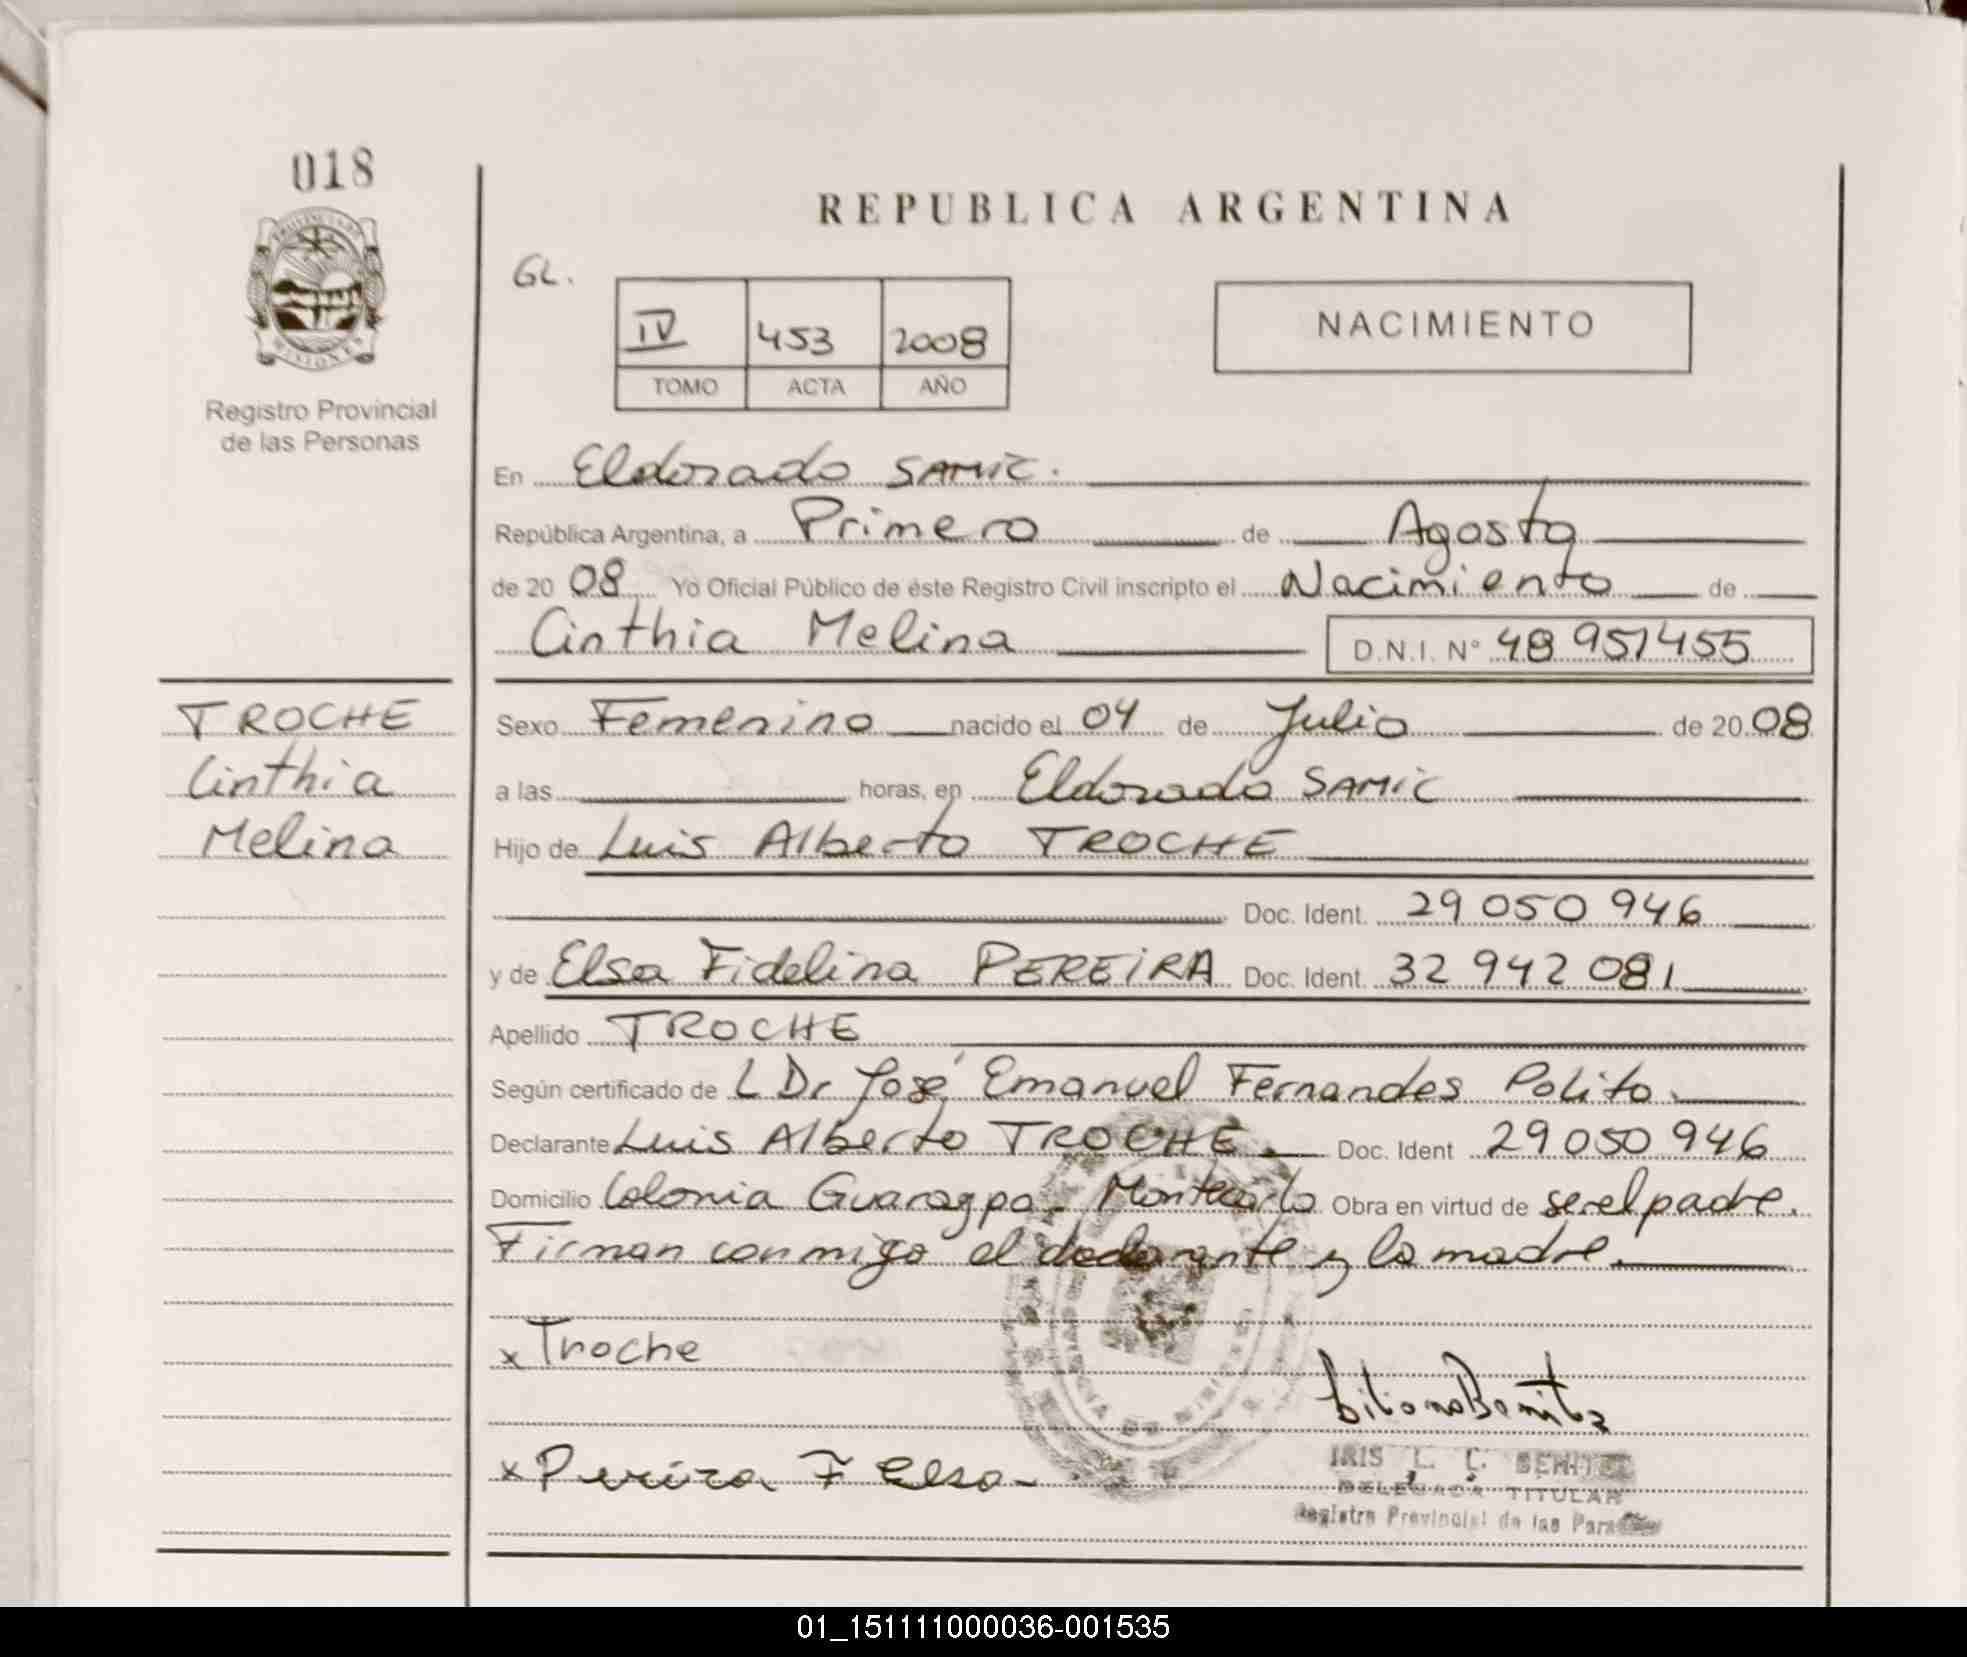 018
PROVINCIA DE
MISIONES
Registro Provincial
de las Personas
REPUBLICA ARGENTINA
GL.
IV 453 2008
TOMO ACTA AÑO
NACIMIENTO
En Eldorado SAMIC.
República Argentina, a Primero de Agosto
de 20 08 Yo Oficial Público de éste Registro Civil inscripto el Nacimiento de
Cinthia Melina D.N.I. Nº 48 951455
TROCHE
Cinthia
Melina
Sexo Femenino nacido el 04 de Julio de 20 08
a las horas, en Eldorado SAMIC
Hijo de Luis Alberto TROCHE
Doc. Ident. 29 050 946
y de Elsa Fidelina PEREIRA Doc. Ident. 32 942 081
Apellido TROCHE
Según certificado de L Dr José Emanuel Fernandes Polito
Declarante Luis Alberto TROCHE Doc. Ident 29 050 946
Domicilio Colonia Guaraypo. Montecarlo Obra en virtud de ser el padre.
Firman conmigo el declarante y la madre.
x Troche
x Pereira F Elsa
IRIS L. C. BENITEZ
DELEGADA TITULAR
Registro Provincial de las Personas
01_151111000036-001535